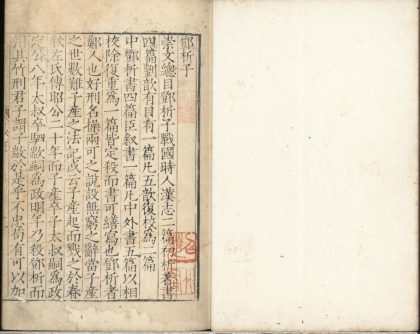 鄧析子
崇文總目鄧析子戰國時人漢志二篇初析著書
四篇劉歆有目有一篇凡五歆復校爲二篇
中鄧析書四篇臣叙書一篇凡中外書五篇以相
校除復重爲一篇皆定殺而書可繕寫也鄧析者
鄭人也好刑名操兩可之說設無窮之辭當子產
之世數難子產之法記或云子產起而戮之於春
秋左氏傳昭公二十年而子產卒子太叔嗣爲政
定公八年太叔卒駟歂嗣爲政明年乃殺鄧析而
用其竹刑君子謂子歂於是乎不忠苟有可以加